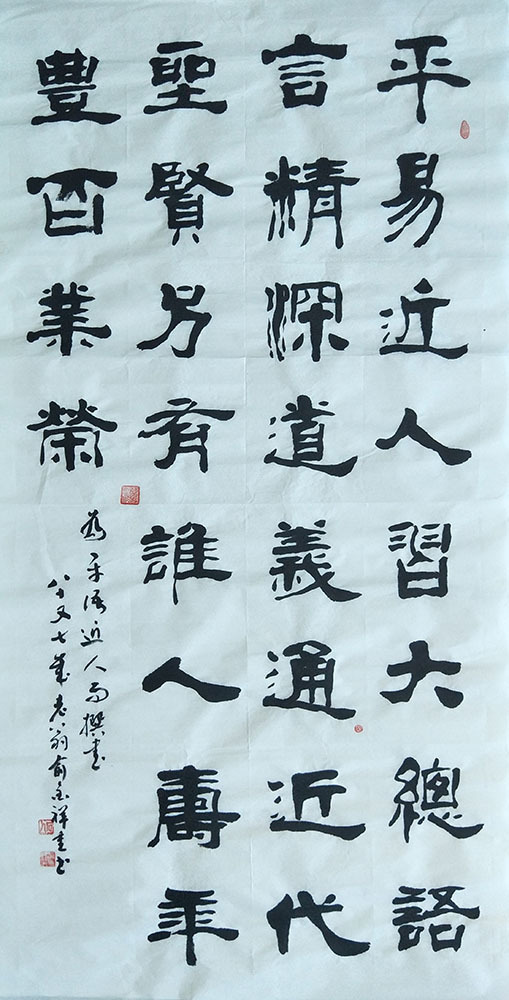 平易近人習大總語
言精深道義通近代
聖賢另有誰人壽年
豐百業榮
為平語近人而撰書
八十又七歲老翁俞
祥書